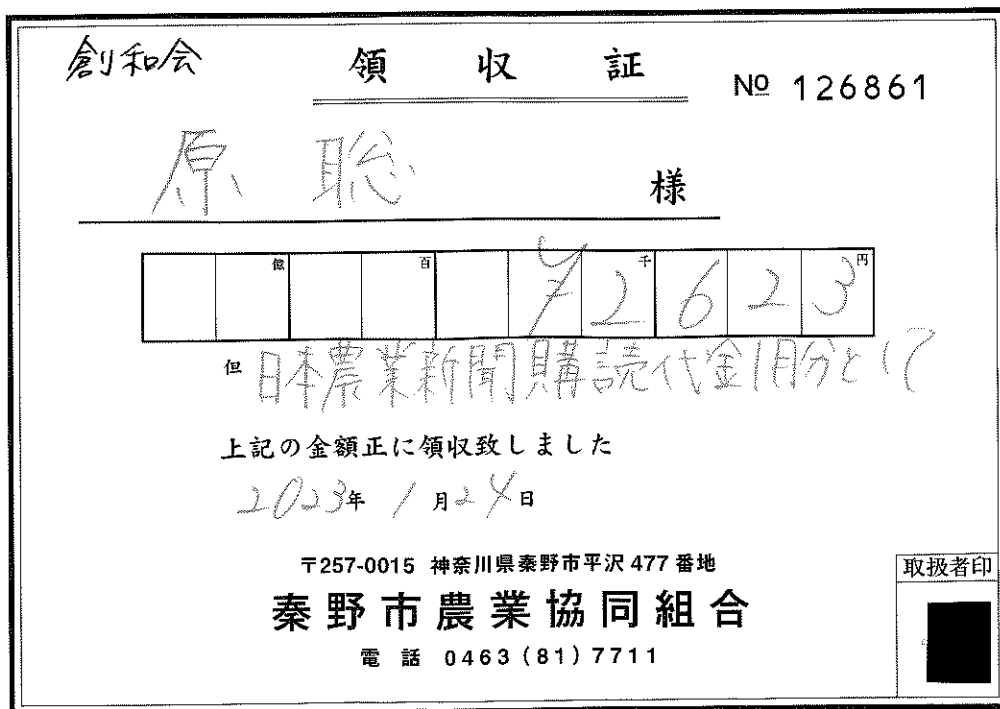 創和会
領収証
№ 126861
原 聡 様
億 百 千 円
¥2623
但 日本農業新聞購読代金1月分として
上記の金額正に領収致しました
2023年1月24日
〒257-0015 神奈川県秦野市平沢477番地
秦野市農業協同組合
電話 0463(81)7711
取扱者印